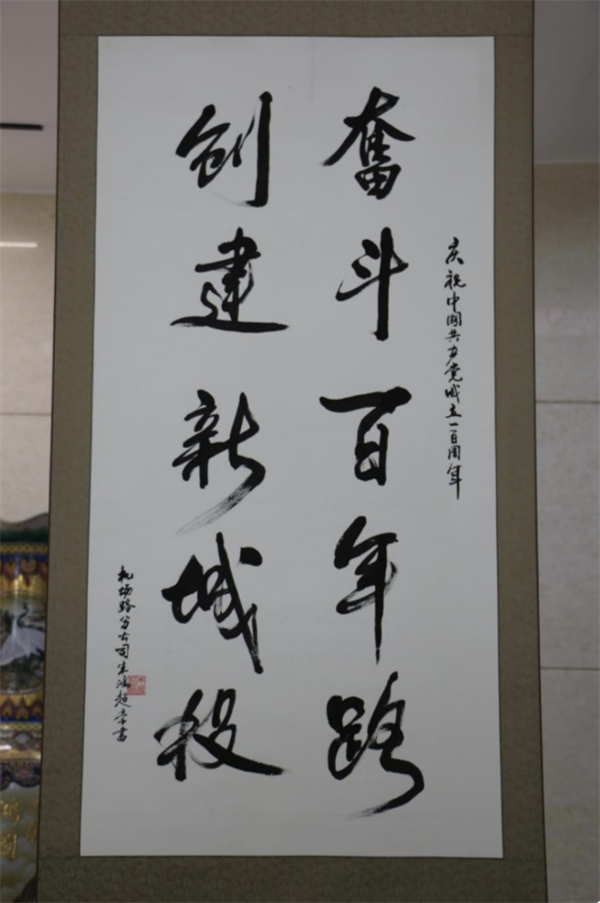 庆祝中国共产党成立一百周年
奋斗百年路
创建新城投
机场路分公司朱海超书